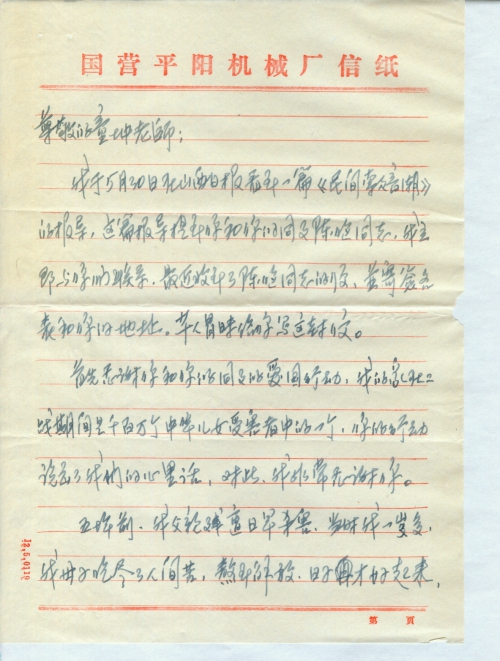 国营平阳机械厂信纸
尊敬的童增老师:
我于5月30日在山西日报看到一篇《民间索赔潮》
的报导,这篇报导提到你和你的同友陈 同志,我主
即与你们联系,最近收到了陈 同志的信,并寄
表和你的地址。本人冒昧给你写这封信。
首先感谢你和你的同友的爱国行动,我的家在二
战期间是千百万个中华儿女受害者中的一个,你的行动
说出了我们的心里话,对此,我非常感谢你。
五 前,我父亲 遭日军杀害,当时我一岁多,
我母子吃尽了人间苦,熬到解放,日子 才好起来,
第 页